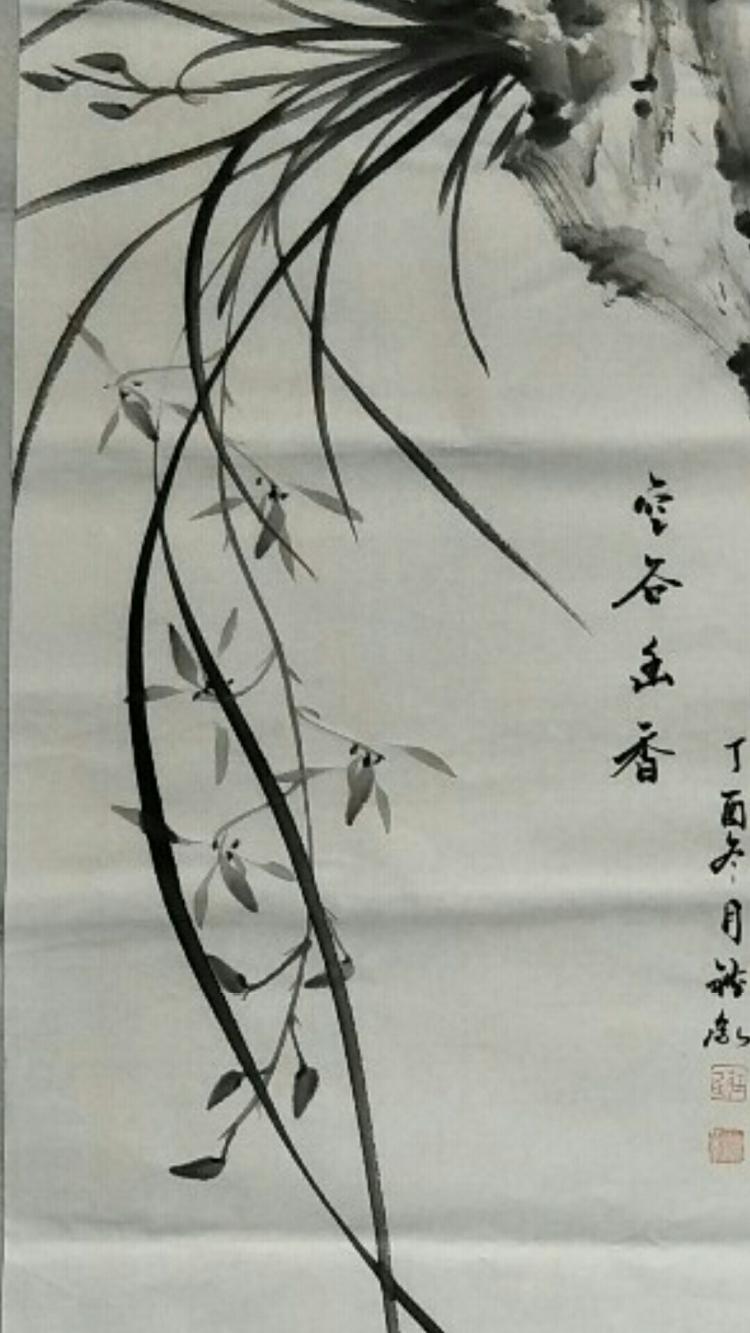 空谷幽香
丁酉冬月